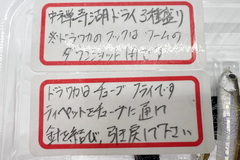 中禅寺湖ドライ3種盛り
※ドラワカのフックはブームの
ダウンショット用です
ドラワカはチューブフライです
ティペットをチューブに通し
針を結び、引き戻して下さい